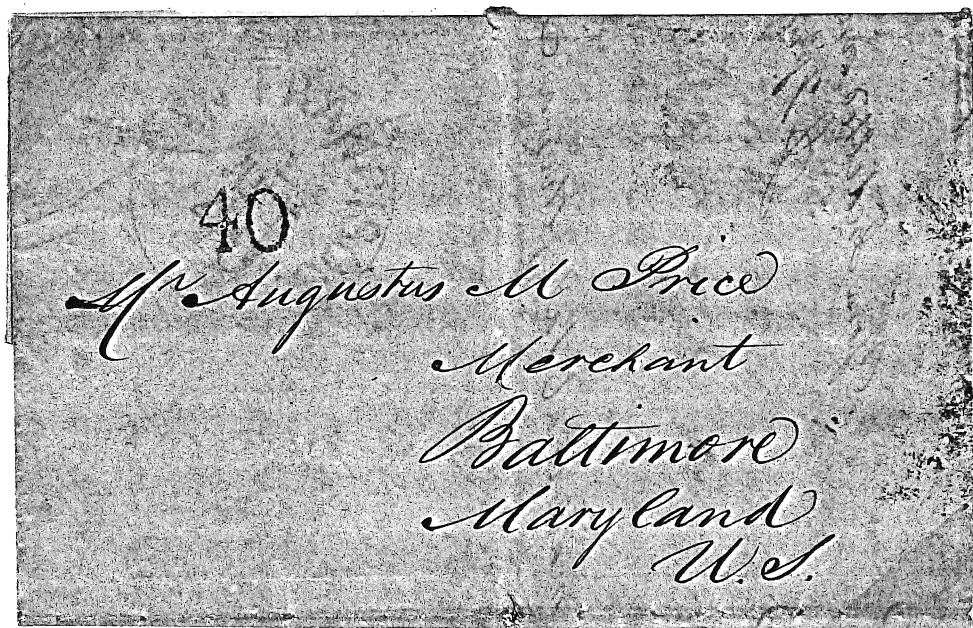 40
Mr Augustus M Price
Merchant
Baltimore
Maryland
U.S.